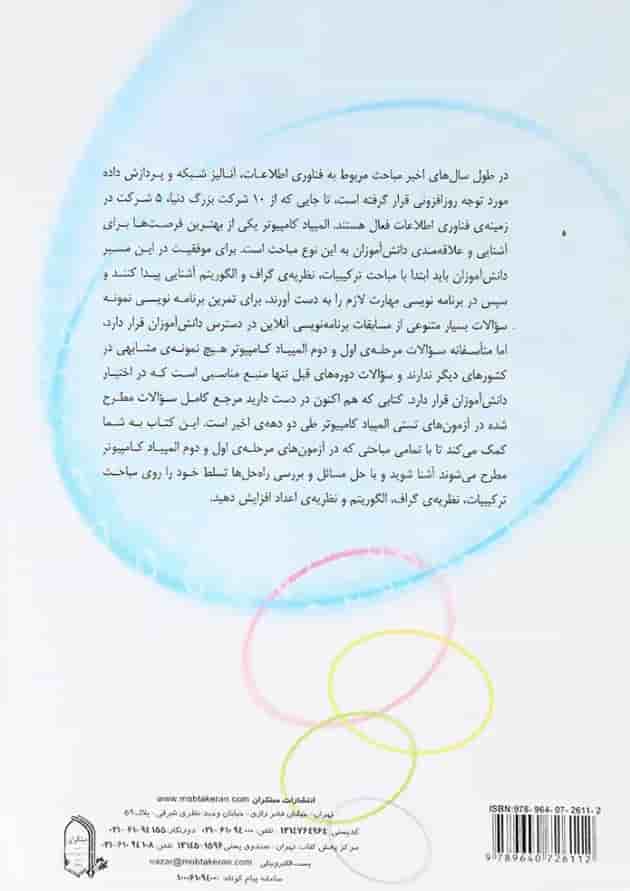 در طول سال‌های اخیر مباحث مربوط به فناوری اطلاعات، آنالیز شبکه و پردازش داده
مورد توجه روزافزونی قرار گرفته است، تا جایی که از ۱۰ شرکت بزرگ دنیا، ۵ شرکت در
زمینه‌ی فناوری اطلاعات فعال هستند. المپیاد کامپیوتر یکی از بهترین فرصت‌ها برای
آشنایی و علاقه‌مندی دانش‌آموزان به این نوع مباحث است. برای موفقیت در این مسیر
دانش‌آموزان باید ابتدا با مباحث ترکیبیات، نظریه‌ی گراف و الگوریتم آشنایی پیدا کنند و
سپس در برنامه نویسی مهارت لازم را به دست آورند. برای تمرین برنامه نویسی نمونه
سؤالات بسیار متنوعی از مسابقات برنامه‌نویسی آنلاین در دسترس دانش‌آموزان قرار دارد،
اما متأسفانه سؤالات مرحله‌ی اول و دوم المپیاد کامپیوتر هیچ نمونه‌ی مشابهی در
کشورهای دیگر ندارند و سؤالات دوره‌های قبل تنها منبع مناسبی است که در اختیار
دانش‌آموزان قرار دارد. کتابی که هم اکنون در دست دارید مرجع کامل سؤالات مطرح
شده در آزمون‌های تستی المپیاد کامپیوتر طی دو دهه‌ی اخیر است. این کتاب به شما
کمک می‌کند تا با تمامی مباحثی که در آزمون‌های مرحله‌ی اول و دوم المپیاد کامپیوتر
مطرح می‌شوند آشنا شوید و با حل مسائل و بررسی راه‌حل‌ها تسلط خود را روی مباحث
ترکیبیات، نظریه‌ی گراف، الگوریتم و نظریه‌ی اعداد افزایش دهید.
انتشارات مبتکران www.mobtakeran.com
تهران، خیابان فخر رازی، خیابان وحید نظری شرقی، پلاک ۵۹
کدپستی: ۱۳۱۴۷۶۴۹۶۴ تلفن: ۶۱۰۹۴۰۰۰-۰۲۱ دورنگار: ۶۱۰۹۴۱۵۵-۰۲۱
مرکز پخش کتاب: تهران، صندوق پستی ۱۵۹۶-۱۳۱۴۵ تلفن: ۶۱۰۹۴۱۰۸-۰۲۱
پست الکترونیکی: nazar@mobtakeran.com
سامانه پیام کوتاه: ۱۰۰۰۶۱۰۹۴۰۰۰
مبتکران
ISBN: 978-964-07-2611-2
9 789640 726112